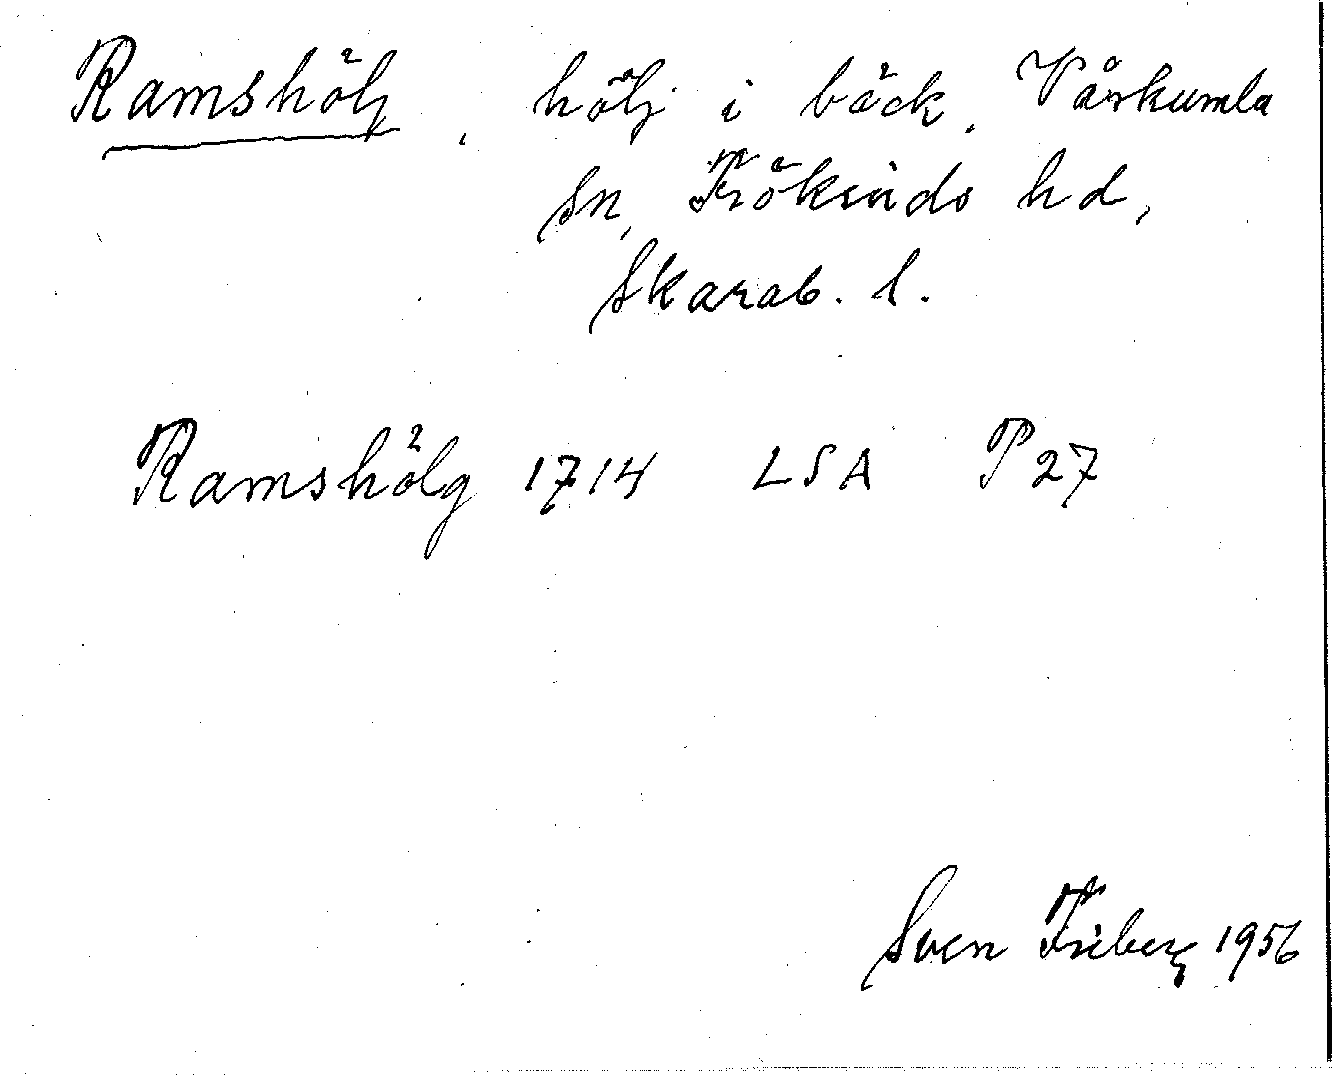 Ramshölj, hölj i bäck, Vårkumla
sn, Frökinds hd,
Skarab. l.
Ramshölg 1714 LSA P27
Sven Friberg 1956